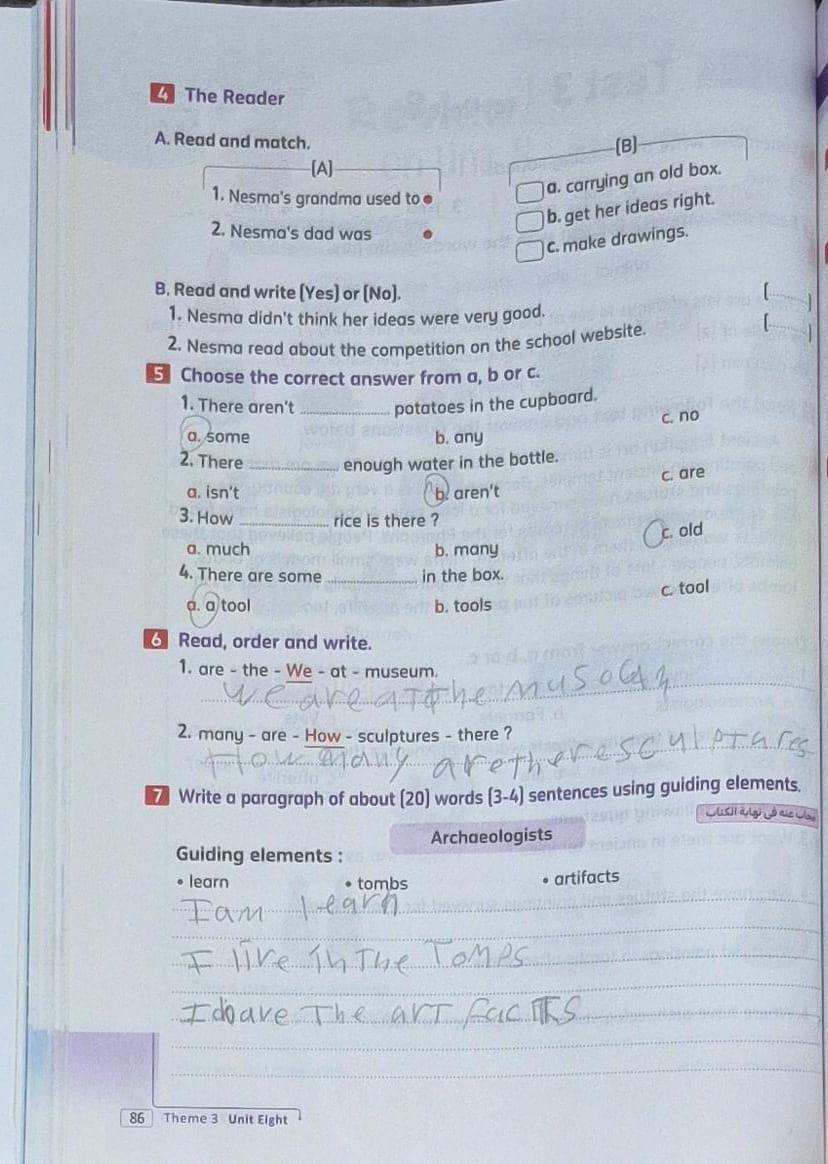 4 The Reader
A. Read and match.
(A) (B)
1. Nesma's grandma used to
a. carrying an old box.
2. Nesma's dad was
b. get her ideas right.
c. make drawings.
B. Read and write (Yes) or (No).
1. Nesma didn't think her ideas were very good. (........)
2. Nesma read about the competition on the school website. (........)
5 Choose the correct answer from a, b or c.
1. There aren't .................... potatoes in the cupboard.
a. some b. any c. no
2. There .................... enough water in the bottle.
a. isn't b. aren't c. are
3. How .................... rice is there ?
a. much b. many c. old
4. There are some .................... in the box.
a. a tool b. tools c. tool
6 Read, order and write.
1. are - the - We - at - museum.
we are at the
2. many - are - How - sculptures - there ?
How many are there sculptares
7 Write a paragraph of about (20) words (3-4) sentences using guiding elements.
مجاب عنه في نهاية الكتاب
Archaeologists
Guiding elements :
• learn • tombs • artifacts
I am learn
I live in The Tomps
The art facTs
86 Theme 3 Unit Eight